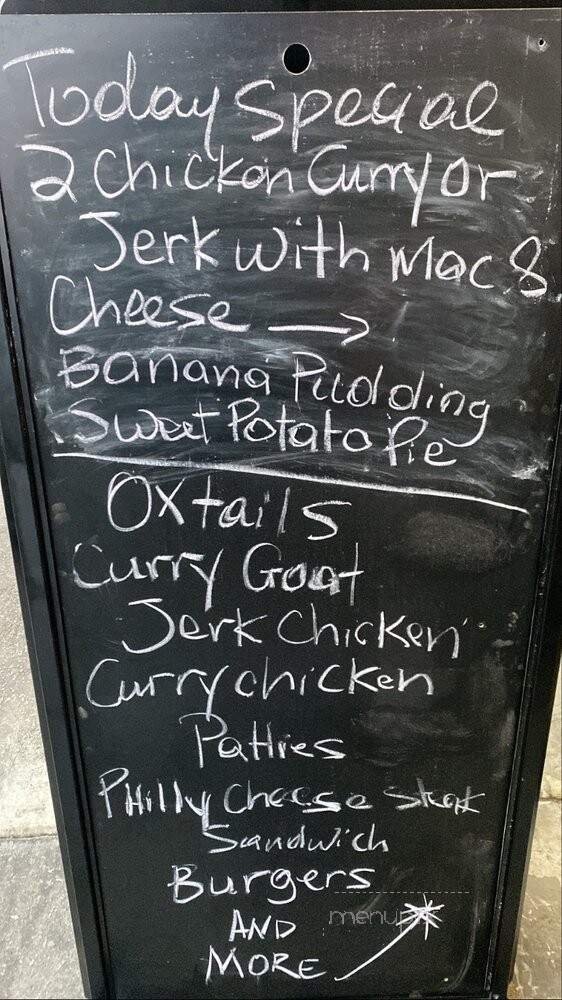 Today Special
2 Chicken Curry or
Jerk with Mac &
Cheese →
Banana Pudding
Sweet Potato Pie
Oxtails
Curry Goat
Jerk Chicken
Curry chicken
Patties
Philly Cheese Steak
Sandwich
Burgers
AND
menupix
MORE